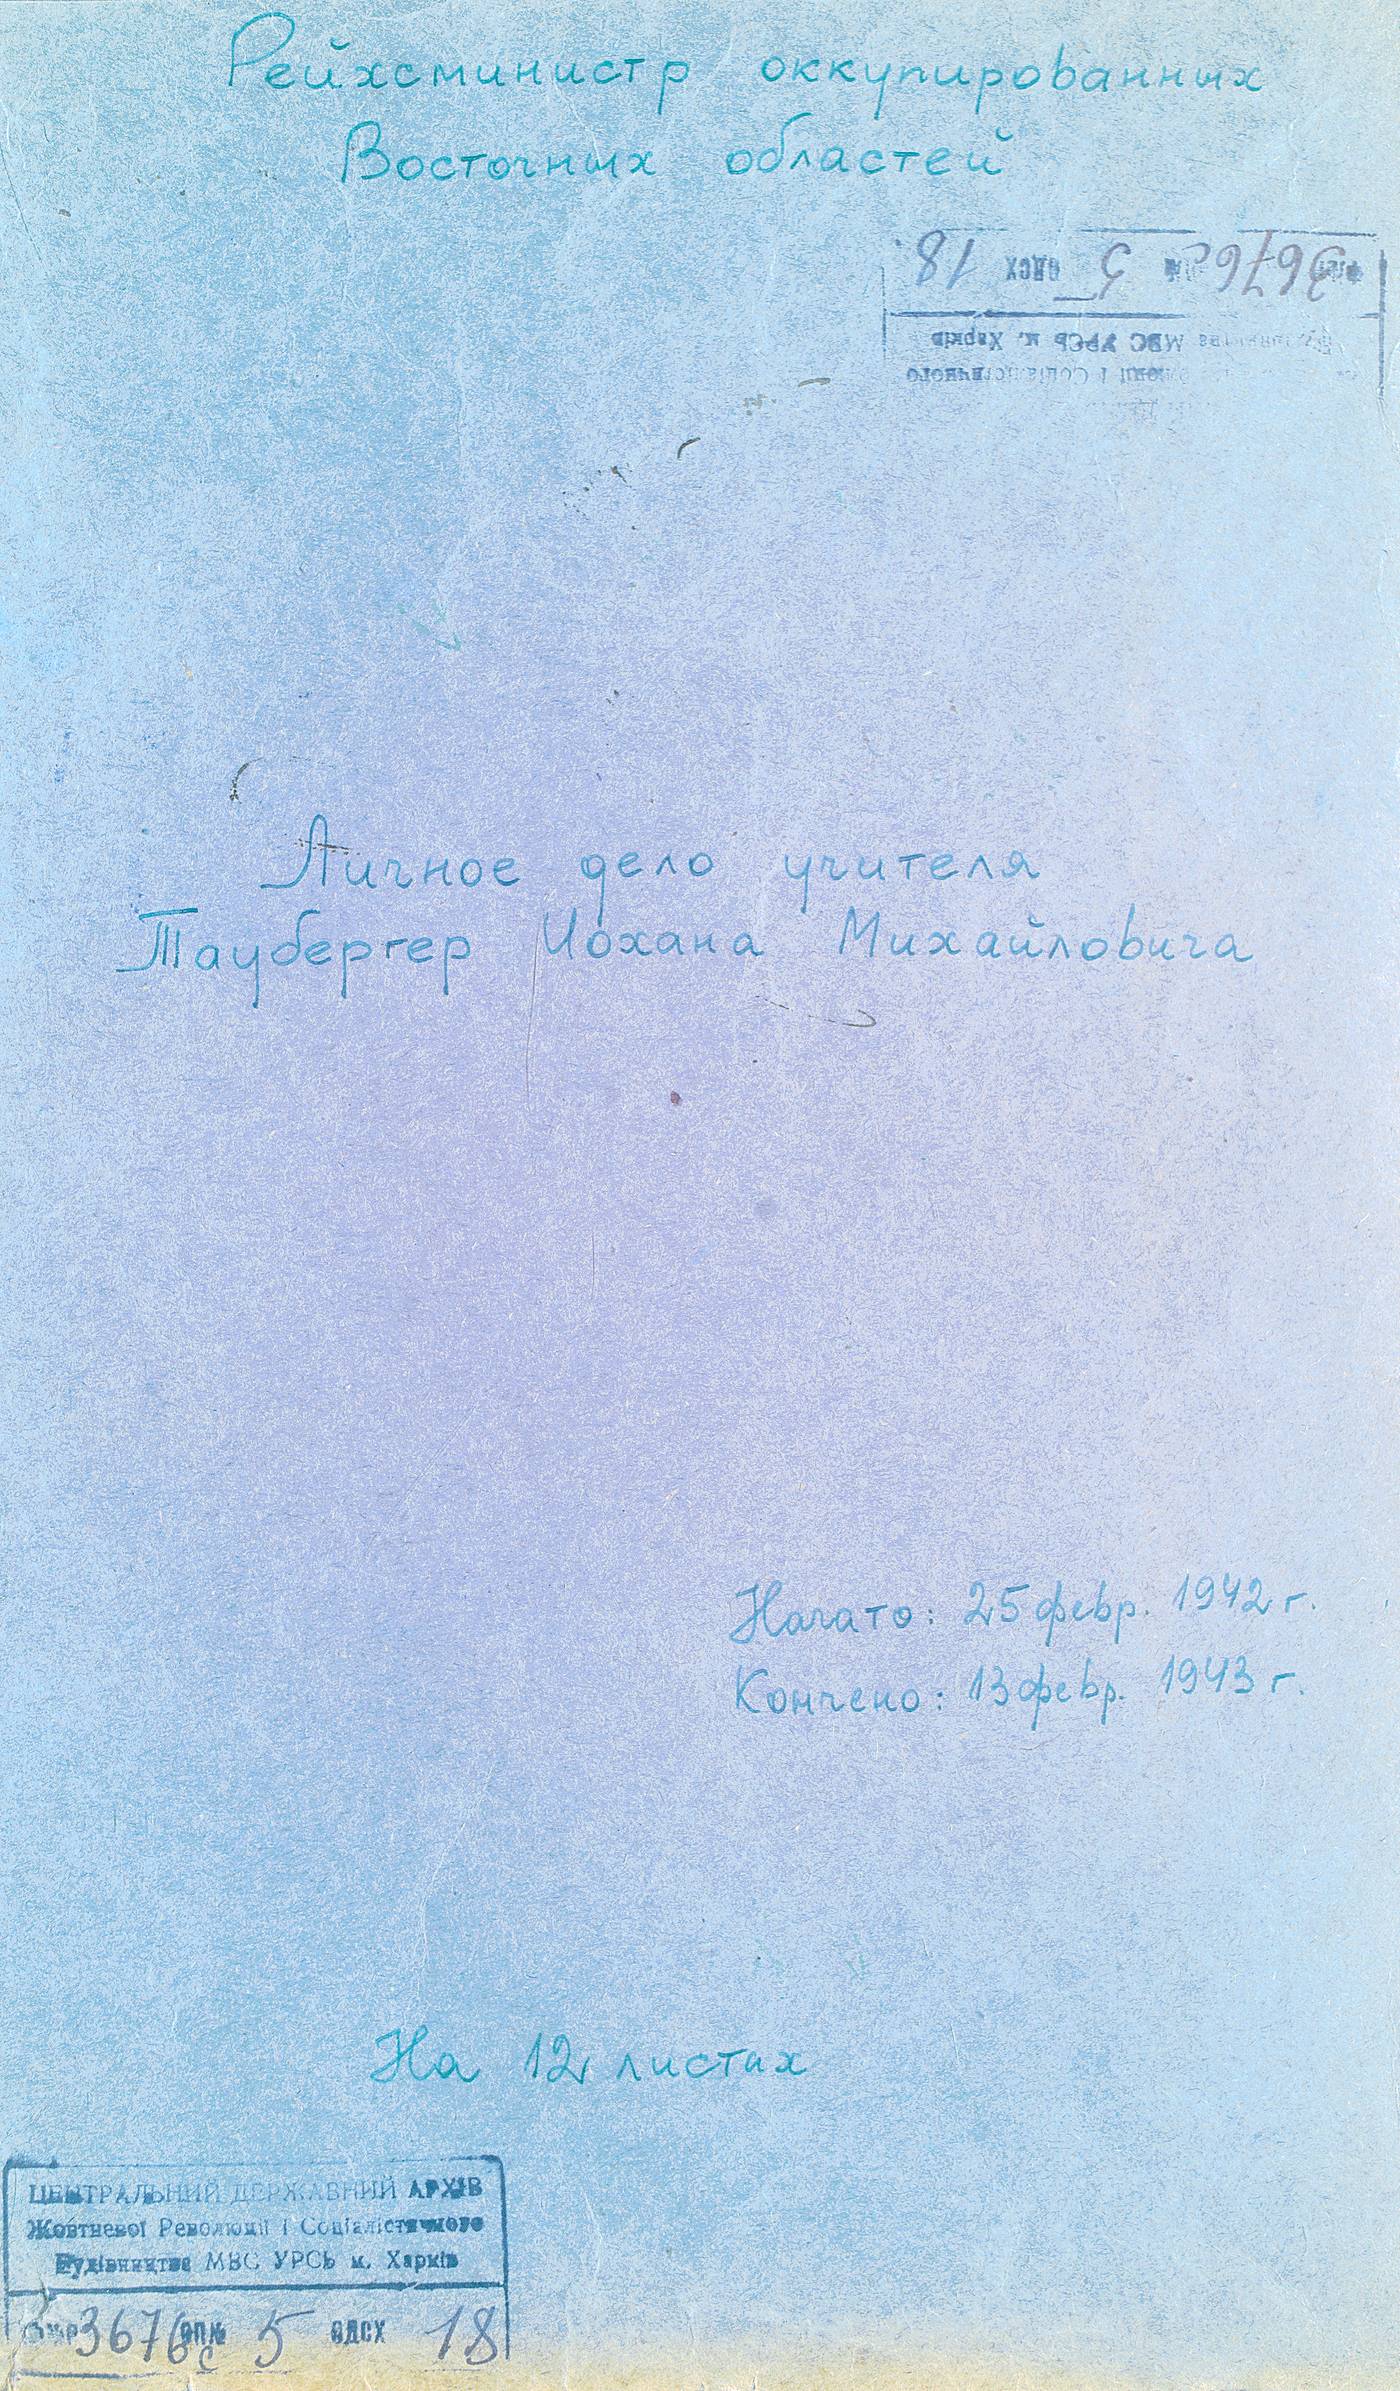 Рейхсминистр оккупированных
Восточных областей
3676с 5 ОДСХ 18.
МВС УРСР м. Харків
і Соціалістичного
Личное дело учителя
Таубергер Иохана Михайловича
Начато: 25 февр. 1942 г.
Кончено: 13 февр. 1943 г.
На 12 листах
ЦЕНТРАЛЬНИЙ ДЕРЖАВНИЙ АРХІВ
Жовтневої Революції і Соціалістичного
Будівництва МВС УРСР м. Харків
3676с ОП№ 5 ОДСХ 18